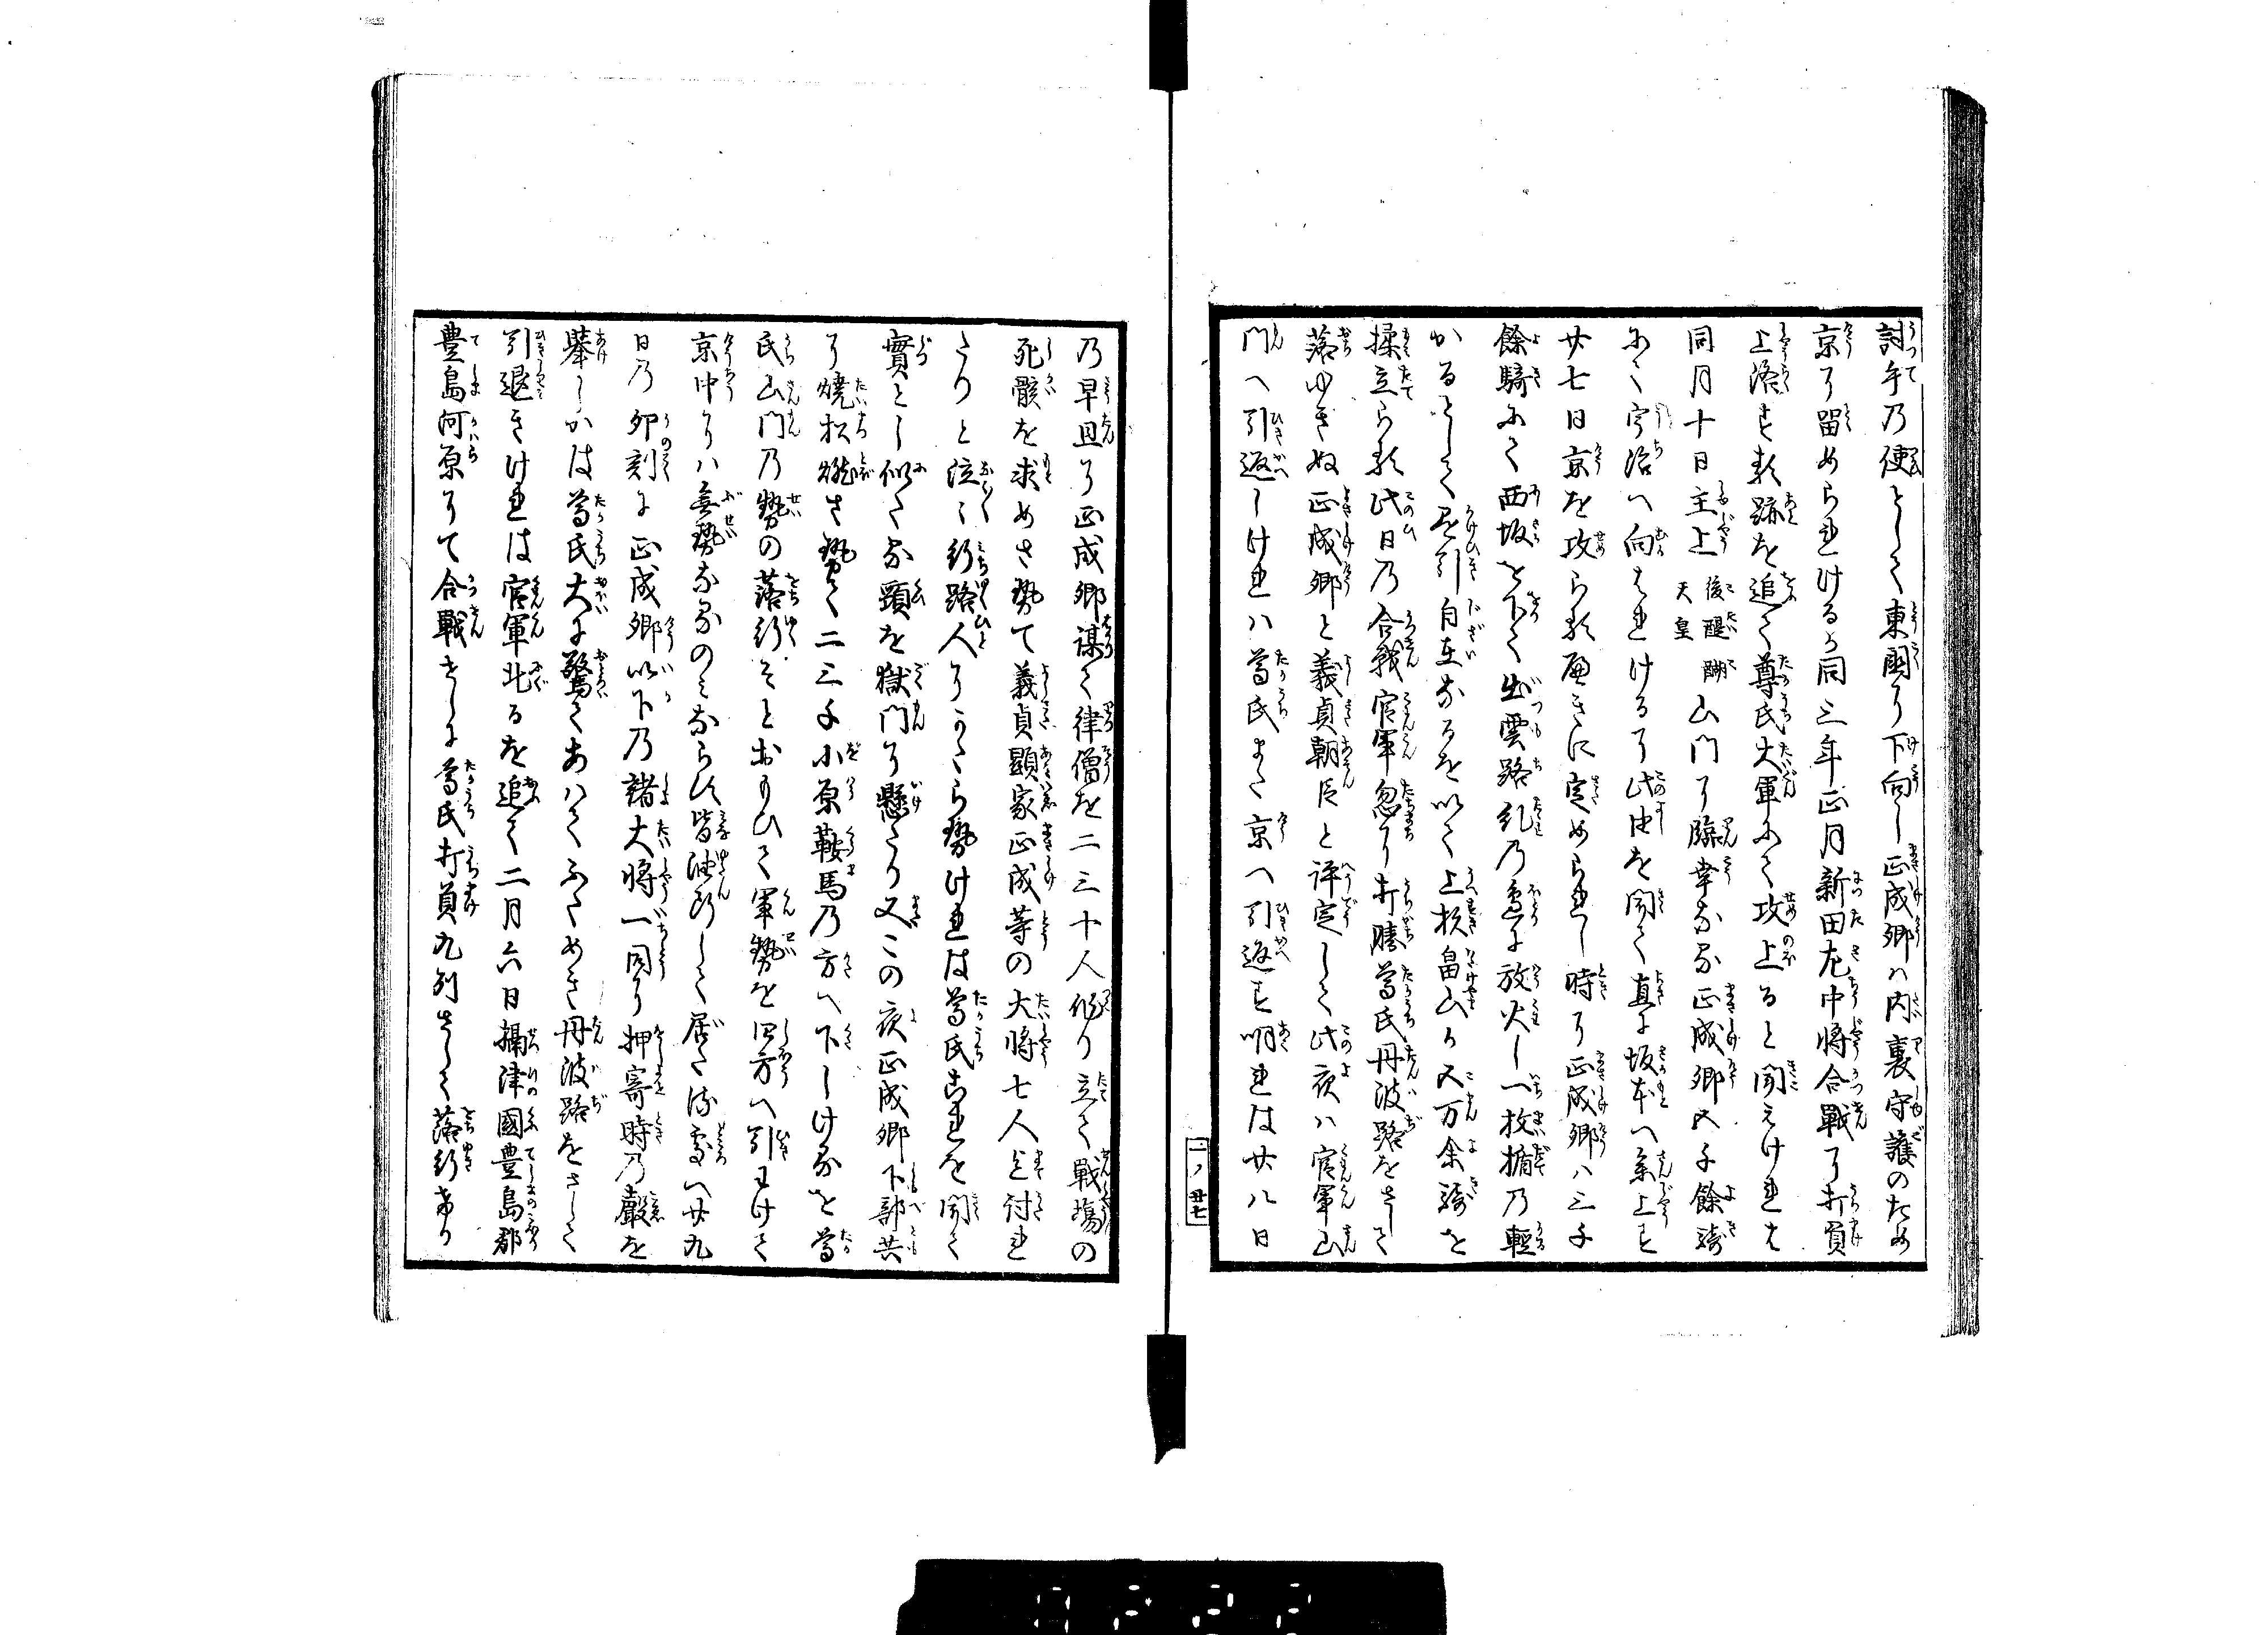 討手乃使として東國に下向し正成卿ハ内裏守護のため
京に留めらされけるか同三年正月新田左中将合戰に打負
上洛す其跡を追て尊氏大軍にて攻上ると聞えけれは
同月十日主上後醍醐天皇山門に臨幸なる正成卿五千餘騎
にて宇治へ向はれけるに此由を聞て直に坂本へ参上す
廿七日京を攻らるへきに定められし時に正成卿ハ三千
餘騎にて西坂を下て出雲路乱乃邊に放火し一枚楯乃輕
かるをして懸引自在なるを以て上杉畠山か五万余騎を
揉立らる此日乃合戦官軍忽に打勝尊氏丹波路をさして
落ゆきぬ正成卿と義貞朝臣と評定して此夜ハ官軍山
門へ引返しけれハ尊氏また京へ引返す明れは廿八日
二ノ廿七
乃早旦に正成卿謀て律僧を二三十人作り立て戰塲の
死骸を求めさせて義貞顯家正成等の大将七人迄討れ
たりと泣〻行路人にかたらせけれは尊氏これを聞て
實とし似たる頸を獄門に懸たり又この夜正成卿下部共
に燒松燃させて二三千小原鞍馬乃方へ下しけるを尊
氏山門乃勢の落行そとおもひて軍勢を四方へ引わけて
京中にハ無勢なるのみならす皆油断して居たる處へ廿九
日乃卯刻に正成卿以下乃諸大将一同に押寄時乃聲を
擧しかは尊氏大に驚てあハてふためき丹波路をさして
引退きけれは官軍北るを追て二月六日攝津國豊島郡
豊島河原にて合戰せしに尊氏打負九州さして落行けり